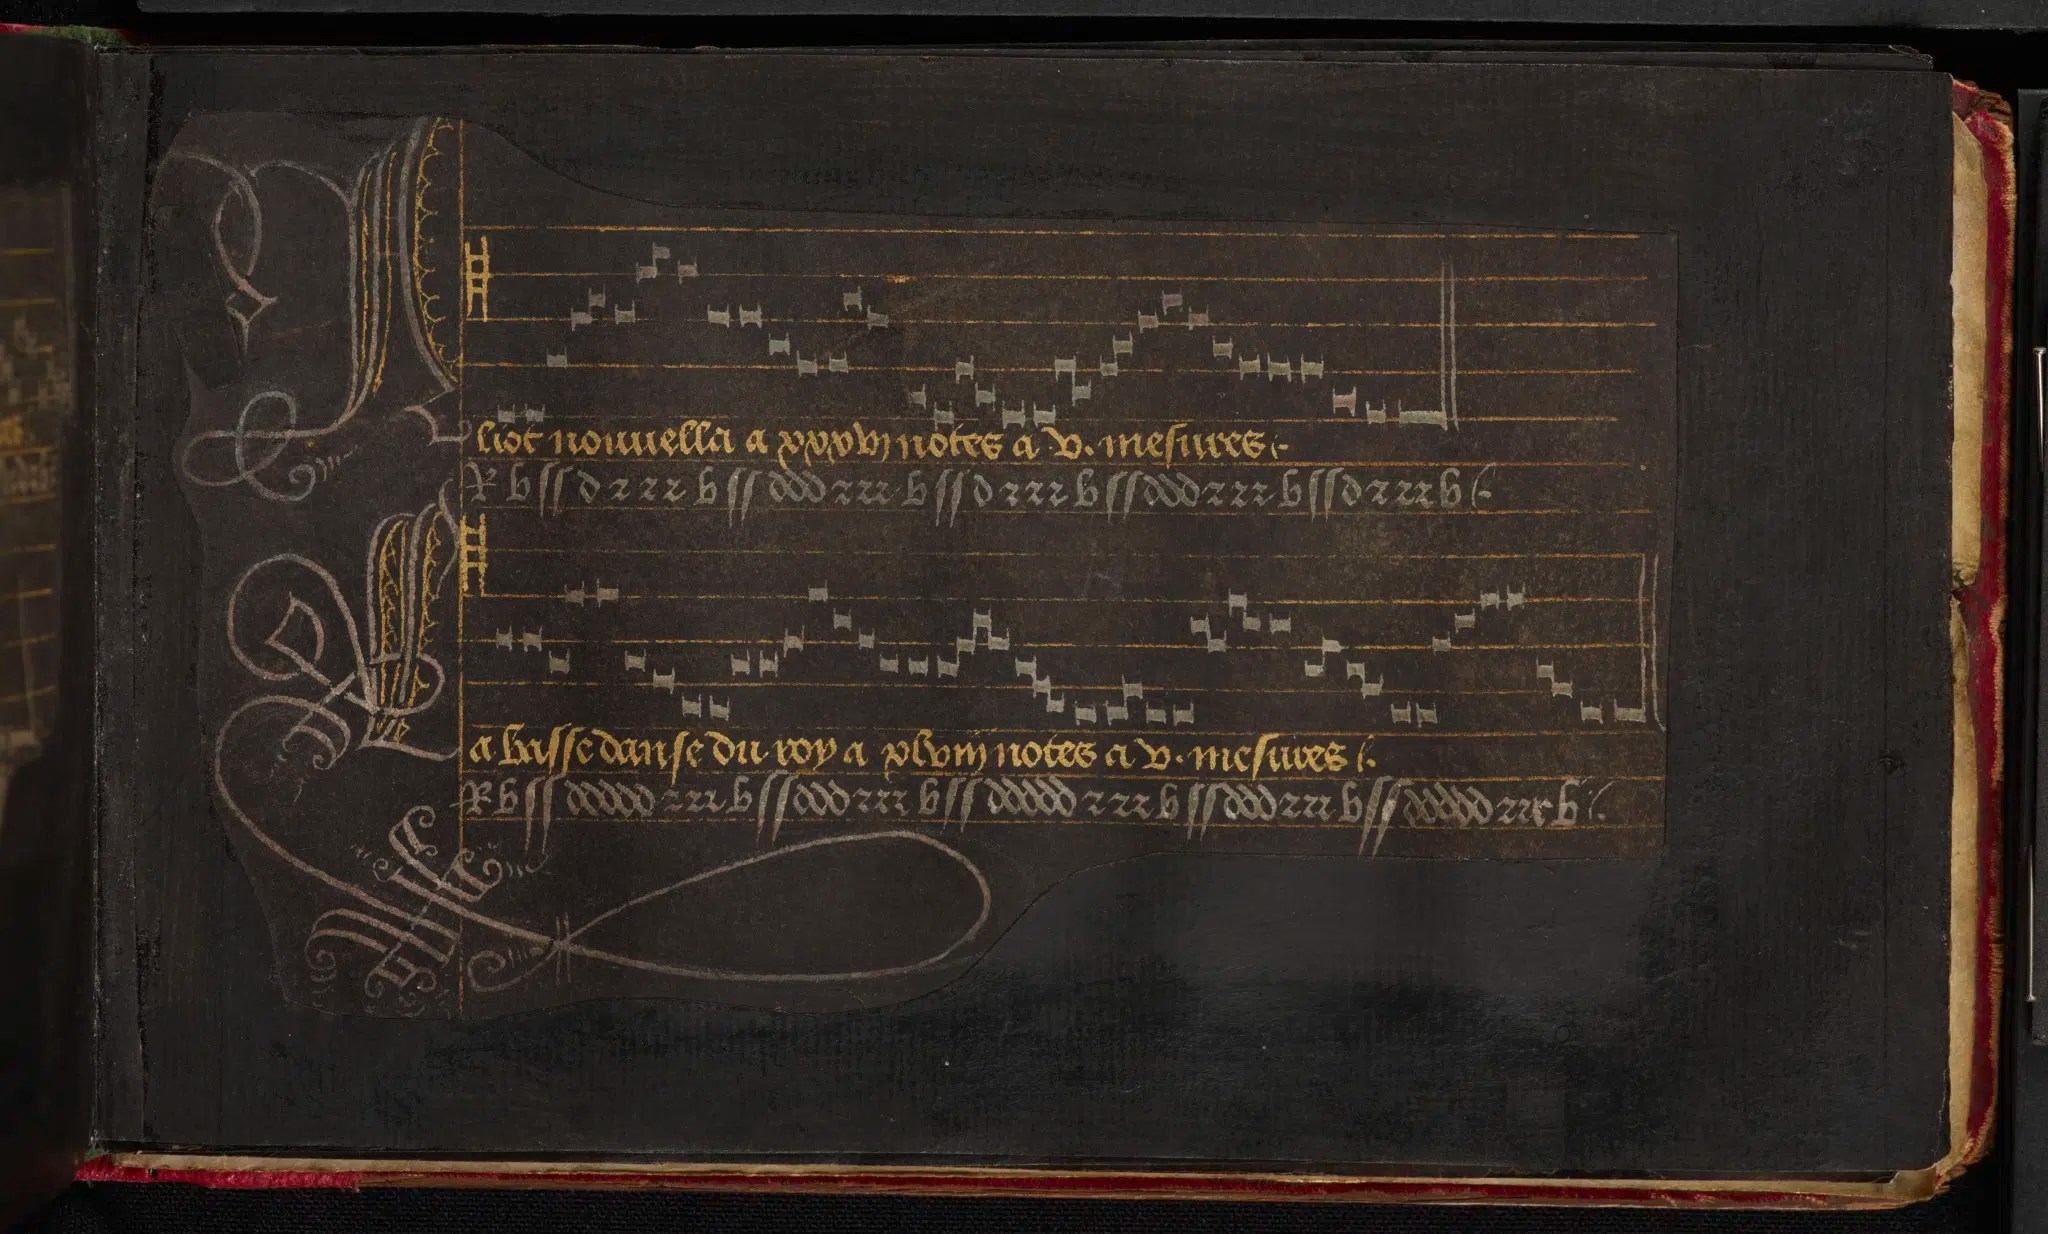 Aliot nouuella a xxxvj notes a .v. mesures
R b ss d r r r b ss ddd rrr b ss d rrr b ss ddd rrr b ss d rrr b
La basse danse du roy a xlviij notes a .v. mesures
R b ss ddddd rrr b ss ddd rrr b ss ddddd rrr b ss ddd rrr b ss ddddd rrr b